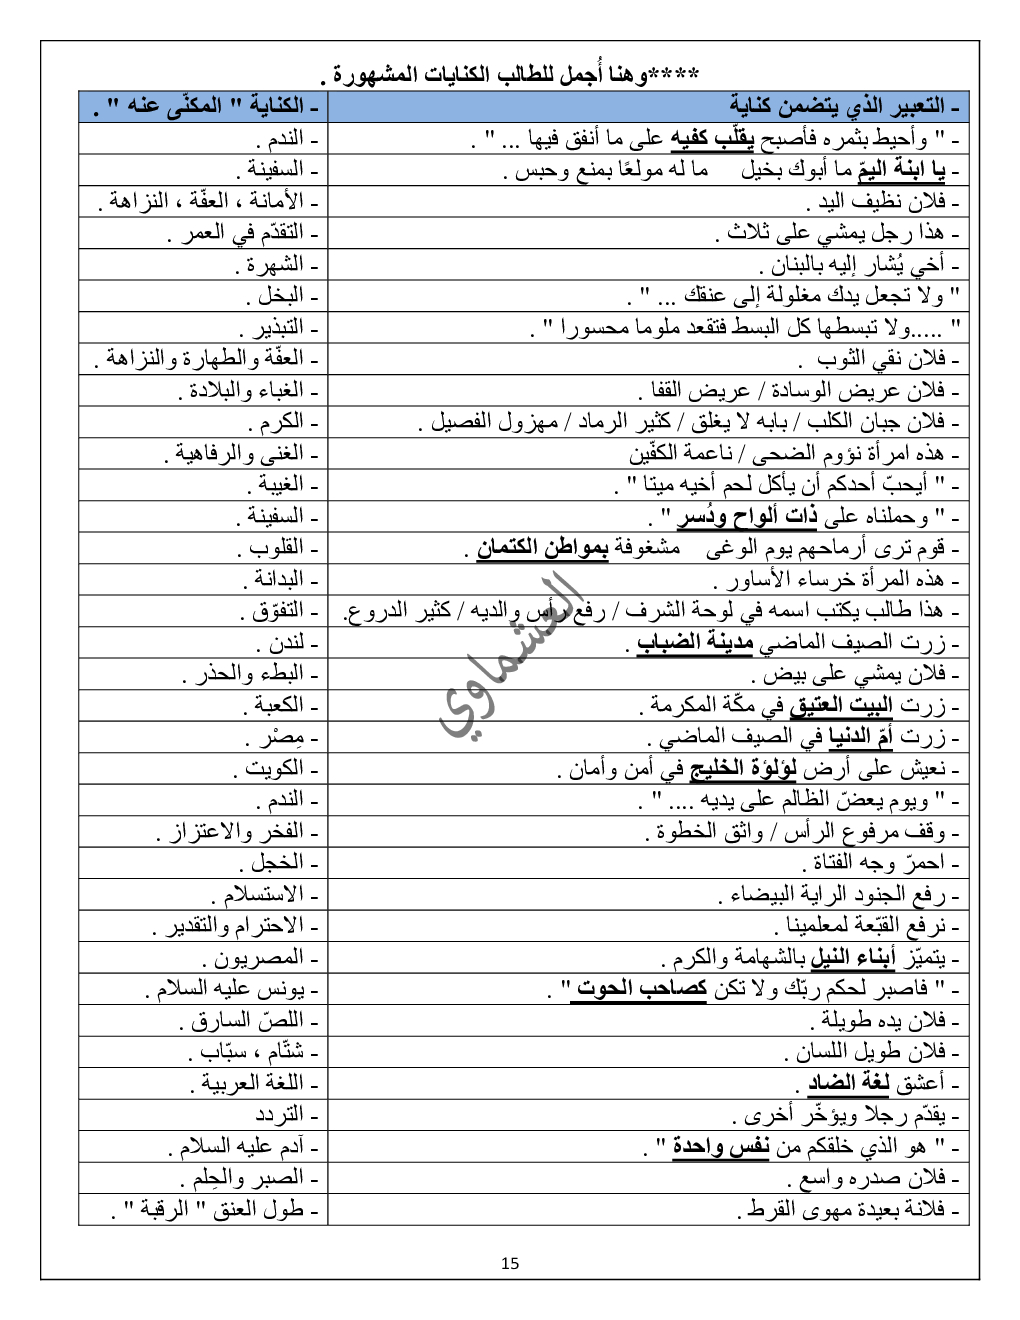 ****وهنا أُجمل للطالب الكنايات المشهورة .
- التعبير الذي يتضمن كناية - الكناية " المكنّى عنه " .
- " وأحيط بثمره فأصبح يقلّب كفيه على ما أنفق فيها ... " . - الندم .
- يا ابنة اليمّ ما أبوك بخيل ما له مولعًا بمنع وحبس . - السفينة .
- فلان نظيف اليد . - الأمانة ، العفّة ، النزاهة .
- هذا رجل يمشي على ثلاث . - التقدّم في العمر .
- أخي يُشار إليه بالبنان . - الشهرة .
" ولا تجعل يدك مغلولة إلى عنقك ... " . - البخل .
" .....ولا تبسطها كل البسط فتقعد ملوما محسورا " . - التبذير .
- فلان نقي الثوب . - العفّة والطهارة والنزاهة .
- فلان عريض الوسادة / عريض القفا . - الغباء والبلادة .
- فلان جبان الكلب / بابه لا يغلق / كثير الرماد / مهزول الفصيل . - الكرم .
- هذه امرأة نؤوم الضحى / ناعمة الكفّين - الغنى والرفاهية .
- " أيحبّ أحدكم أن يأكل لحم أخيه ميتا " . - الغيبة .
- " وحملناه على ذات ألواح ودُسر " . - السفينة .
- قوم ترى أرماحهم يوم الوغى مشغوفة بمواطن الكتمان . - القلوب .
- هذه المرأة خرساء الأساور . - البدانة .
- هذا طالب يكتب اسمه في لوحة الشرف / رفع رأس والديه / كثير الدروع. - التفوّق .
- زرت الصيف الماضي مدينة الضباب . - لندن .
- فلان يمشي على بيض . - البطء والحذر .
- زرت البيت العتيق في مكّة المكرمة . - الكعبة .
- زرت أمّ الدنيا في الصيف الماضي . - مِصْر .
- نعيش على أرض لؤلؤة الخليج في أمن وأمان . - الكويت .
- " ويوم يعضّ الظالم على يديه .... " . - الندم .
- وقف مرفوع الرأس / واثق الخطوة . - الفخر والاعتزاز .
- احمرّ وجه الفتاة . - الخجل .
- رفع الجنود الراية البيضاء . - الاستسلام .
- نرفع القبّعة لمعلمينا . - الاحترام والتقدير .
- يتميّز أبناء النيل بالشهامة والكرم . - المصريون .
- " فاصبر لحكم ربّك ولا تكن كصاحب الحوت " . - يونس عليه السلام .
- فلان يده طويلة . - اللصّ السارق .
- فلان طويل اللسان . - شتّام ، سبّاب .
- أعشق لغة الضاد . - اللغة العربية .
- يقدّم رجلا ويؤخّر أخرى . - التردد
- " هو الذي خلقكم من نفس واحدة " . - آدم عليه السلام .
- فلان صدره واسع . - الصبر والحِلم .
- فلانة بعيدة مهوى القرط . - طول العنق " الرقبة " .
العشماوي
15